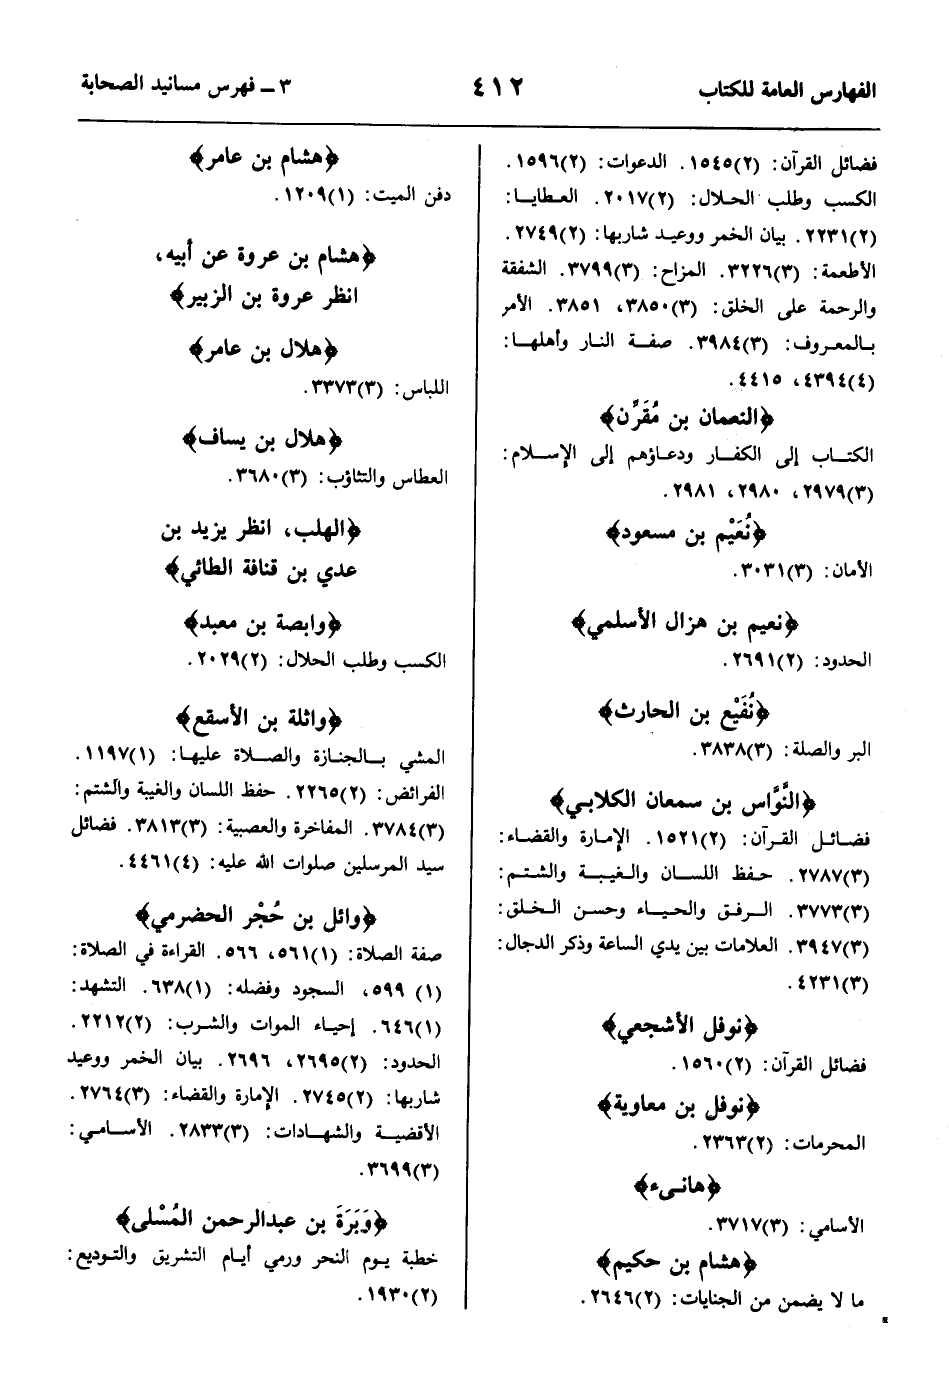 الفهارس العامة للكتاب
٤١٢
٣ ــ فهرس مسانيد الصحابة
فضائل القرآن: (٢)١٥٤٥. الدعوات: (٢)١٥٩٦.
الكسب وطلب الحلال: (٢)٢٠١٧. العطايا:
(٢)٢٢٣١. بيان الخمر ووعيد شاربها: (٢)٢٧٤٩.
الأطعمة: (٣)٣٢٢٦. المزاح: (٣)٣٧٩٩. الشفقة
والرحمة على الخلق: (٣)٣٨٥٠، ٣٨٥١. الأمر
بالمعروف: (٣)٣٩٨٤. صفة النار وأهلها:
(٤)٤٣٩٤، ٤٤١٥.
﴿النعمان بن مُقَرِّن﴾
الكتاب إلى الكفار ودعاؤهم إلى الإسلام:
(٣)٢٩٧٩، ٢٩٨٠، ٢٩٨١.
﴿نُعَيْم بن مسعود﴾
الأمان: (٣)٣٠٣١.
﴿نعيم بن هزال الأسلمي﴾
الحدود: (٢)٢٦٩١.
﴿نُفَيْع بن الحارث﴾
البر والصلة: (٣)٣٨٣٨.
﴿النَّوَّاس بن سمعان الكلابي﴾
فضائل القرآن: (٢)١٥٢١. الإمارة والقضاء:
(٣)٢٧٨٧. حفظ اللسان والغيبة والشتم:
(٣)٣٧٧٣. الرفق والحياء وحسن الخلق:
(٣)٣٩٤٧. العلامات بين يدي الساعة وذكر الدجال:
(٣)٤٢٣١.
﴿نوفل الأشجعي﴾
فضائل القرآن: (٢)١٥٦٠.
﴿نوفل بن معاوية﴾
المحرمات: (٢)٢٣٦٣.
﴿هانىء﴾
الأسامي: (٣)٣٧١٧.
﴿هشام بن حكيم﴾
ما لا يضمن من الجنايات: (٢)٢٦٤٦.
﴿هشام بن عامر﴾
دفن الميت: (١)١٢٠٩.
﴿هشام بن عروة عن أبيه،
انظر عروة بن الزبير﴾
﴿هلال بن عامر﴾
اللباس: (٣)٣٣٧٣.
﴿هلال بن يساف﴾
العطاس والتثاؤب: (٣)٣٦٨٠.
﴿الهلب، انظر يزيد بن
عدي بن قنافة الطائي﴾
﴿وابصة بن معبد﴾
الكسب وطلب الحلال: (٢)٢٠٢٩.
﴿واثلة بن الأسقع﴾
المشي بالجنازة والصلاة عليها: (١)١١٩٧.
الفرائض: (٢)٢٢٦٥. حفظ اللسان والغيبة والشتم:
(٣)٣٧٨٤. المفاخرة والعصبية: (٣)٣٨١٣. فضائل
سيد المرسلين صلوات الله عليه: (٤)٤٤٦١.
﴿وائل بن حُجْر الحضرمي﴾
صفة الصلاة: (١)٥٦١، ٥٦٦. القراءة في الصلاة:
(١) ٥٩٩، السجود وفضله: (١)٦٣٨. التشهد:
(١)٦٤٦. إحياء الموات والشرب: (٢)٢٢١٢.
الحدود: (٢)٢٦٩٥، ٢٦٩٦. بيان الخمر ووعيد
شاربها: (٢)٢٧٤٥. الإمارة والقضاء: (٣)٢٧٦٤.
الأقضية والشهادات: (٣)٢٨٣٣. الأسامي:
(٣)٣٦٩٩.
﴿وَبَرَةَ بن عبدالرحمن المُسْلى﴾
خطبة يوم النحر ورمي أيام التشريق والتوديع:
(٢)١٩٣٠.